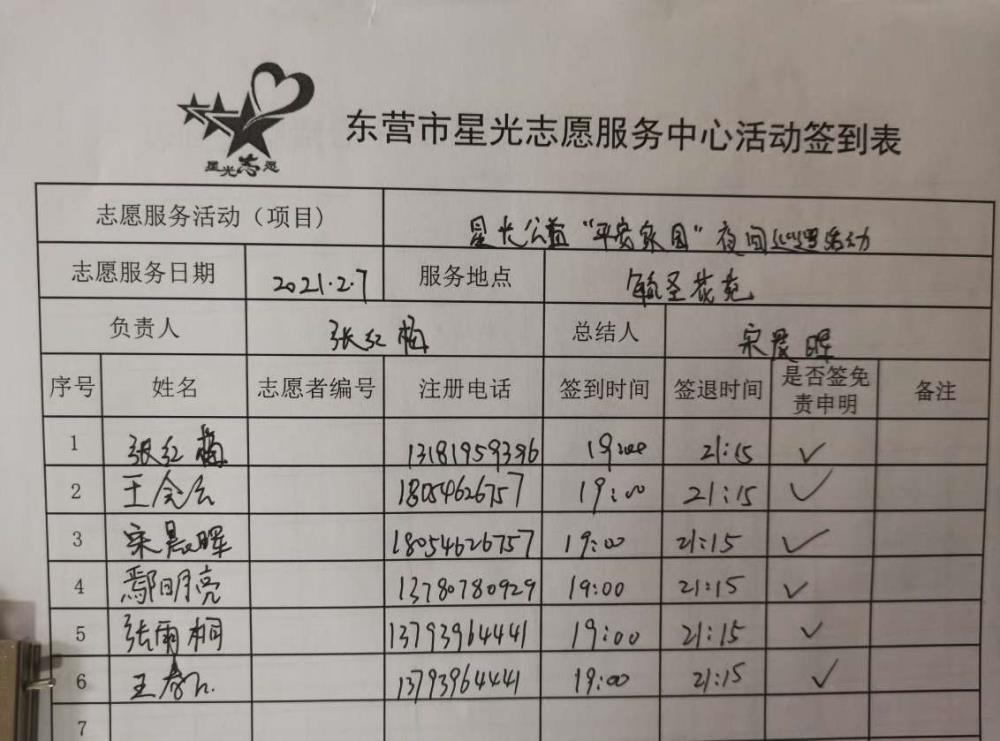 星光志愿
东营市星光志愿服务中心活动签到表
志愿服务活动（项目） 星光公益“平安家园”夜间巡逻活动
志愿服务日期 2021.2.7 服务地点 毓圣花苑
负责人 张红梅 总结人 宋晨晖
序号 姓名 志愿者编号 注册电话 签到时间 签退时间 是否签免责申明 备注
1 张红梅 13181959396 19:00 21:15 ✓
2 王会云 18054626757 19:00 21:15 ✓
3 宋晨晖 18054626757 19:00 21:15 ✓
4 鄢明亮 13780780929 19:00 21:15 ✓
5 张雨桐 13793964441 19:00 21:15 ✓
6 王 13793964441 19:00 21:15 ✓
7